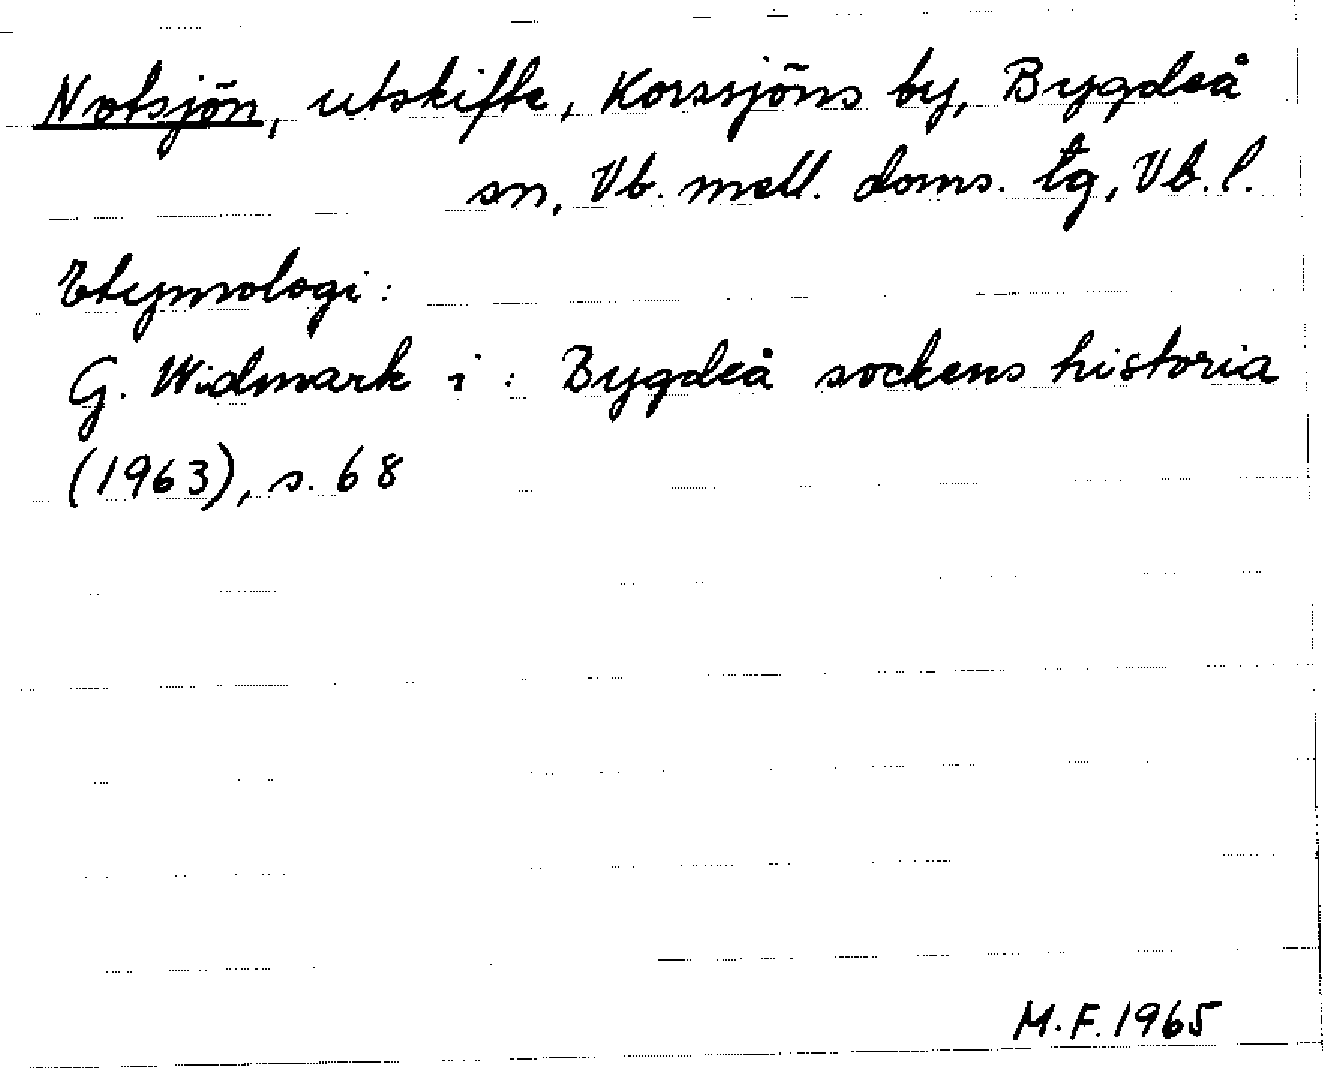 Notsjön, utskifte, Korssjöns by, Bygdeå
sn, Vb. mell. doms. tg, Vb. l.
Etymologi:
G. Widmark i: Bygdeå sockens historia
(1963), s. 68
M.F. 1965